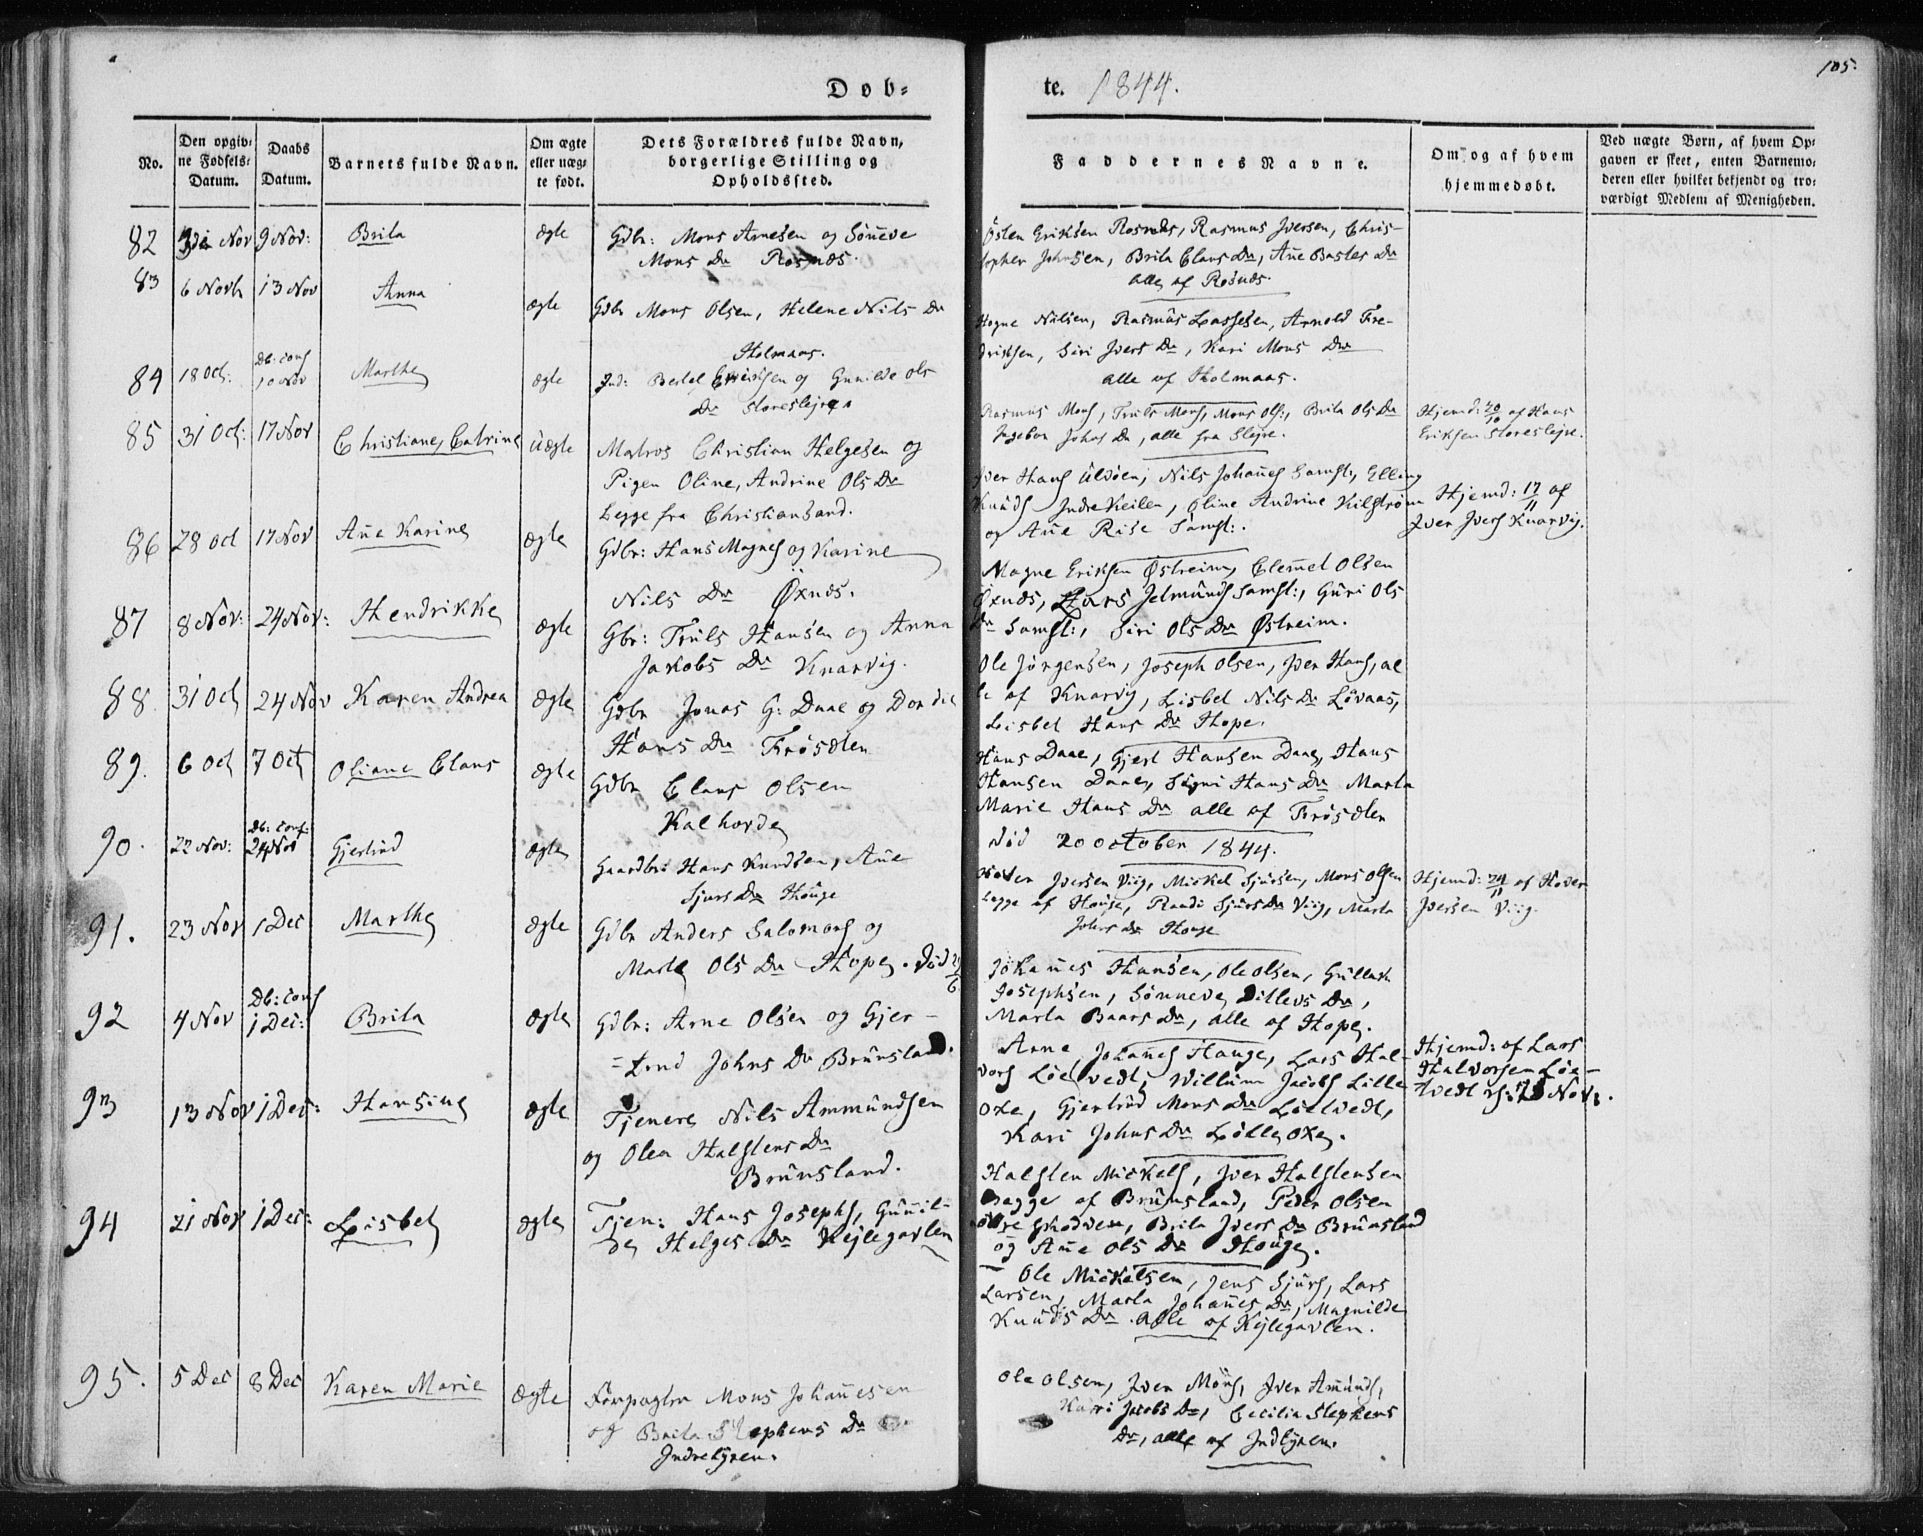 105.
Døb-
te. 1844.
No.
Den opgiv-
ne Fødsels-
Datum.
Daabs
Datum.
Barnets fulde Navn.
Om ægte
eller uæg-
te født.
Dets Forældres fulde Navn,
borgerlige Stilling og
Opholdssted.
Faddernes Navne.
Om og af hvem
hjemmedøbt.
Ved uægte Børn, af hvem Op-
gaven er skeet, enten Barnemo-
deren eller hvilket bekjendt og tro-
værdigt Medlem af Menigheden.
82 Nov 9 Nov: Brita ægte
Gdbr: Mons Arnesen og Sönneve
Mons Dr Rosnæs.
Östen Eriksen Rosnæs, Rasmus Iversen, Chris-
topher Johnsen, Brita Claus Dr, Ane Dr
alle af Rosnæs.
83 6 Novb 13 Nov Anna ægte
Gdbr Mons Olsen, Helene Nils Dr
Holmaas.
Hogne Nilsen, Rasmus Lassesen, Arnold Fre-
driksen, Siri Ivers Dr, Kari Mons Dr
alle af Holmaas.
84 18 Oct: Db: conf
10 Nov Marthe ægte
Ind: Bertel Eriksen og Gunilde Ols
Dr Storeslejre
Rasmus Mons, Truls Mons, Mons Ols:, Brita Ols Dr
Ingebor Johns Dr, alle fra Slejre.
Hjemd: 20/10 af Hans
Eriksen Storeslejre.
85 31 Oct: 17 Nov Christiane, Catrine Uægte
Matros Christian Helgesen og
Pigen Oline, Andrine Ols Dr
begge fra Christiansand.
Iver Hans Ulvöen, Nils Johanes Samst:, Elling
Knuds Indre Keilen, Oline Andrine Kilström
og Ane Rise Samst:.
Hjemd: 17/11 af
Iver Ivers Knarvig.
86 28 Oct 17 Nov Ane Karine ægte
Gdbr: Hans Magnes og Karine
Nils Dr Öxnæs.
Magne Eriksen Østreim, Clemet Olsen
Öxnæs, Lars Jelmunds Samst:, Guri Ols
Dr Samst:, Siri Ols Dr Østreim.
87 8 Nov: 24 Nov: Hendrikke ægte
Gbr: Truls Hansen og Anna
Jakobs Dr Knarvig.
Ole Jörgensen, Joseph Olsen, Iver Hans, al
le af Knarvig, Lisbet Nils Dr Lövaas,
Lisbet Hans Dr Hope.
88. 31 Oct 24 Nov Karen Andrea ægte
Gdbr Jonas G: Daae og Dordie
Hans Dr Frösetlen
Hans Daae, Gjert Hansen Daae, Hans
Hansen Daae, Signi Hans Dr Marta
Marie Hans Dr alle af Frösetlen
89. 6 Oct 7 Oct Oliane Claus ægte
Gdbr Claus Olsen
Kalhovde
död 20 october 1844.
90. 22 Nov: Db: conf:
24 Nov Gjertrud ægte
Gaardbr: Hans Knudsen, Ane
Sjurs Dr Houge
Iversen Viig, Mickel Sjursen, Mons Olsen
begge af Houge, Randi Sjurs Dr Viig, Marta
Johns Dr Houge
Hjemd: 24/11 af
Iversen Viig.
91. 23 Nov 1 Dec Marthe ægte
Gdbr Anders Salomons og
Marte Ols Dr Hope. Död
Johanes Hansen, Ole Olsen, Gullak
Josephsen, Sönneve Ditlevs Dr,
Marta Baars Dr, alle af Hope.
92 4 Nov Db: conf
1 Dec: Brita ægte
Gdbr: Arne Olsen og Gjer-
=trud Johns Dr Brunsland.
Arne Johanes Hauge, Lars Hal-
vors Löetvedt, Willum Jacobs Lille
oxe, Gjertrud Mons Dr Löetvedt,
Kari Johns Dr Lilleoxe.
Hjemd: af Lars
Halvorsen Löe-
tvedt Nov:.
93 13 Nov 1 Dec: Hansine ægte
Tjenere Nils Ammundsen
og Olea Halstens Dr
Brunsland.
Halsten Mickels, Iver Halstensen
begge af Brunsland, Peder Olsen
Skodven, Brita Ivers Dr Brunsland
og Ane Ols Dr Houge.
94 21 Nov 1 Dec: Lisbet ægte
Tjen: Hans Josephs, Gunil-
de Helges Dr Kejlegavlen
Ole Mickelsen, Jens Sjurs, Lars
Larsen, Marta Johanes Dr, Magnilde
Knuds Dr. alle af Kejlegavlen.
95. 5 Dec 8 Dec Karen Marie ægte
Forpagter Mons Johanesen
og Brita Stephens Dr
Indreluren.
Ole Olsen, Iver Mons, Iver Amunds,
Kari Jacobs Dr, Cecilia Stephens
Dr, alle af